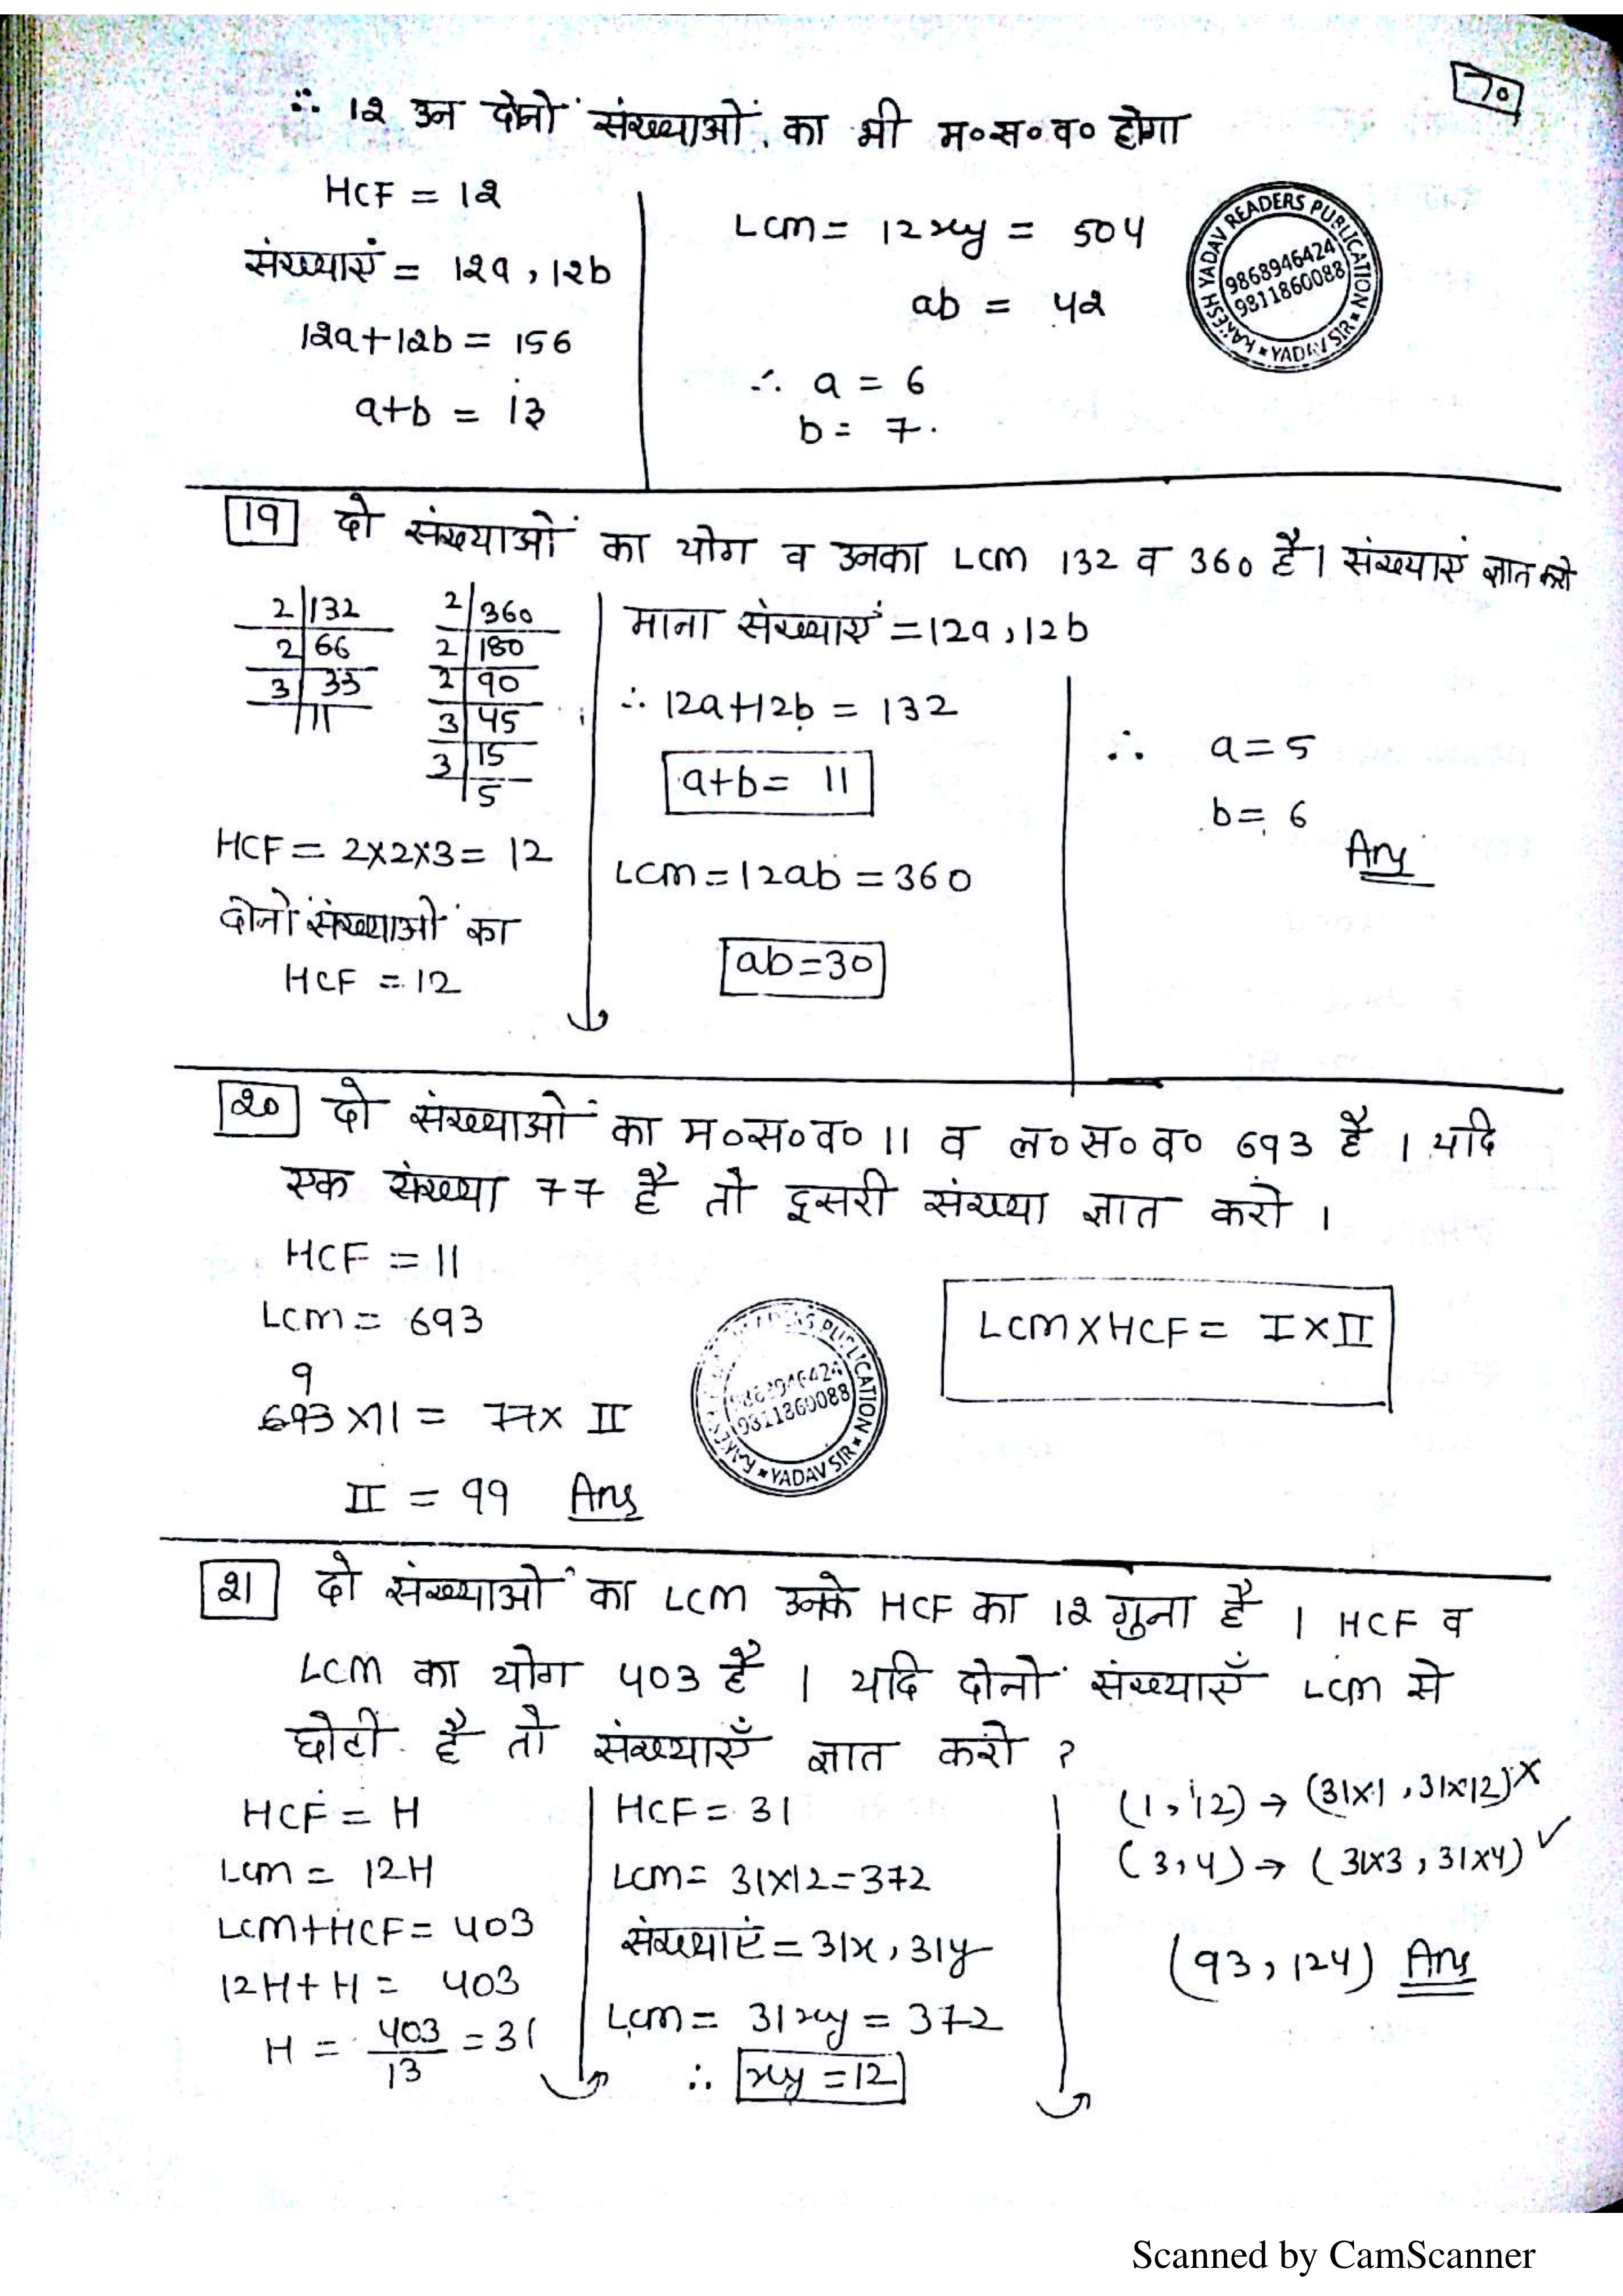 70
∴ 12 उन दोनों संख्याओं का भी म०स०व० होगा
HCF = 12
संख्याएं = 12a, 12b
12a+12b = 156
a+b = 13
LCM = 12xy = 504
ab = 42
∴ a = 6
b = 7.
RAKESH YADAV READERS PUBLICATION
9868946424
9811860088
YADAV SIR
19 दो संख्याओं का योग व उनका LCM 132 व 360 है। संख्याएं ज्ञात करो
2 | 132
2 | 66
3 | 33
11
2 | 360
2 | 180
2 | 90
3 | 45
3 | 15
5
HCF = 2×2×3 = 12
दोनों संख्याओं का
HCF = 12
माना संख्याएं = 12a, 12b
∴ 12a+12b = 132
a+b = 11
LCM = 12ab = 360
ab=30
∴ a=5
b= 6
Ans
20 दो संख्याओं का म०स०व० 11 व ल०स०व० 693 है । यदि
एक संख्या 77 है तो दूसरी संख्या ज्ञात करो ।
HCF = 11
LCM = 693
9
693 × 11 = 77 × II
II = 99 Ans
PUBLICATION
9811860088
YADAV SIR
LCM × HCF = I × II
21 दो संख्याओं का LCM उनके HCF का 12 गुना है । HCF व
LCM का योग 403 है । यदि दोनों संख्याएँ LCM से
छोटी है तो संख्याएँ ज्ञात करो ?
HCF = H
LCM = 12H
LCM+HCF = 403
12H+H = 403
H = 403/13 = 31
HCF = 31
LCM = 31×12=372
संख्याएं = 31x, 31y
LCM = 31xy = 372
∴ xy = 12
(1, 12) → (31×1, 31×12) ×
(3, 4) → (31×3, 31×4) ✓
(93, 124) Ans
Scanned by CamScanner